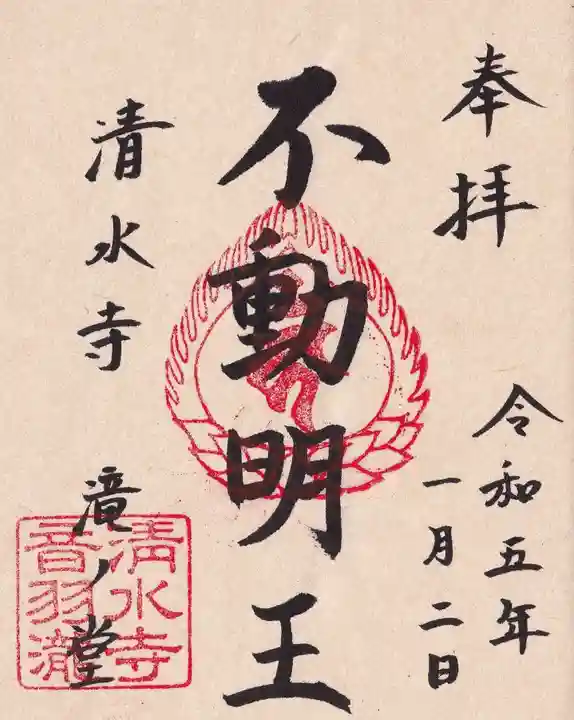 奉拝
令和五年
一月二日
不動明王
清水寺 滝ノ堂
清水寺
音羽瀧